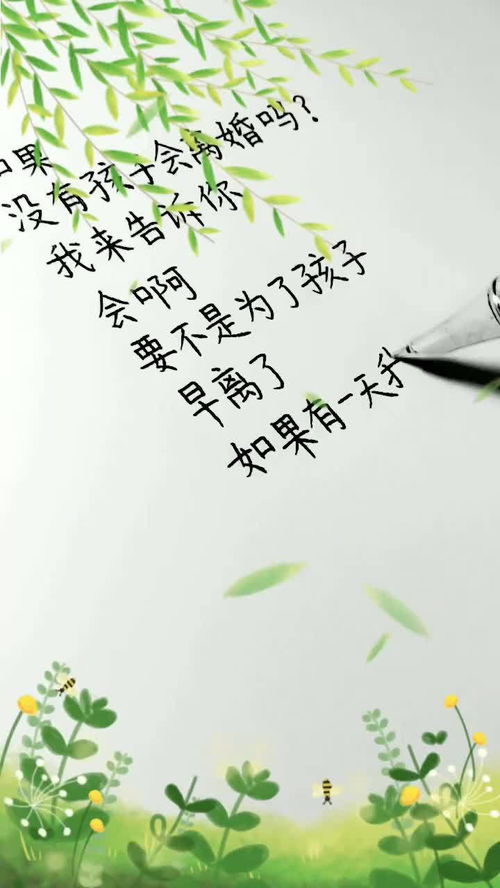 如果
没有孩子会离婚吗?
我来告诉你
会啊
要不是为了孩子
早离了
如果有一天我